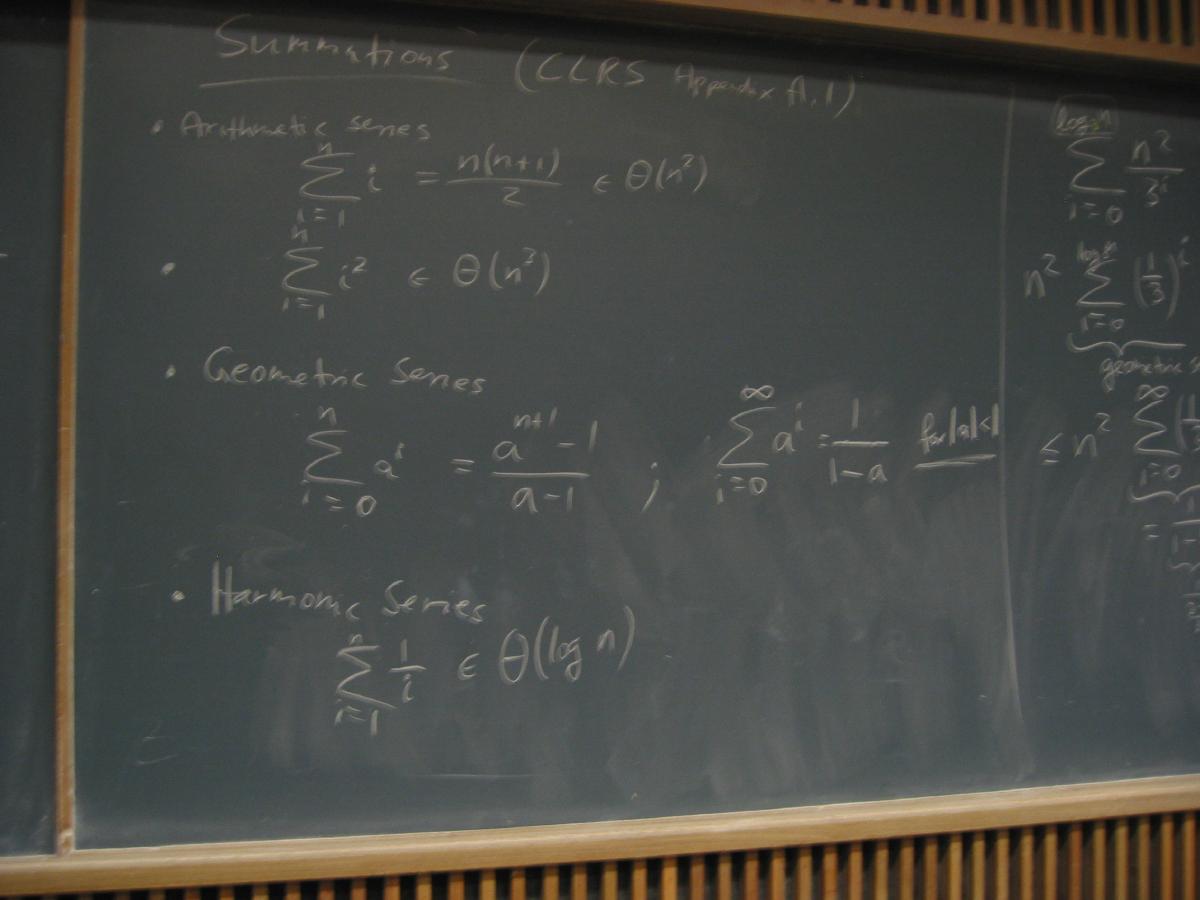 Summations (CLRS Appendix A.1)
• Arithmetic series
n
∑ i = n(n+1)/2 ∈ Θ(n²)
i=1
n
• ∑ i² ∈ Θ(n³)
i=1
• Geometric Series
n
∑ aⁱ = (aⁿ⁺¹ - 1)/(a - 1) ;
i=0
∞
∑ aⁱ = 1/(1-a) for |a|<1
i=0
• Harmonic Series
n
∑ 1/i ∈ Θ(log n)
i=1
∑ n²/3ⁱ
i=0
n² ∑ (1/3)ⁱ
i=0
geometric
∞
≤ n² ∑
i=0
=